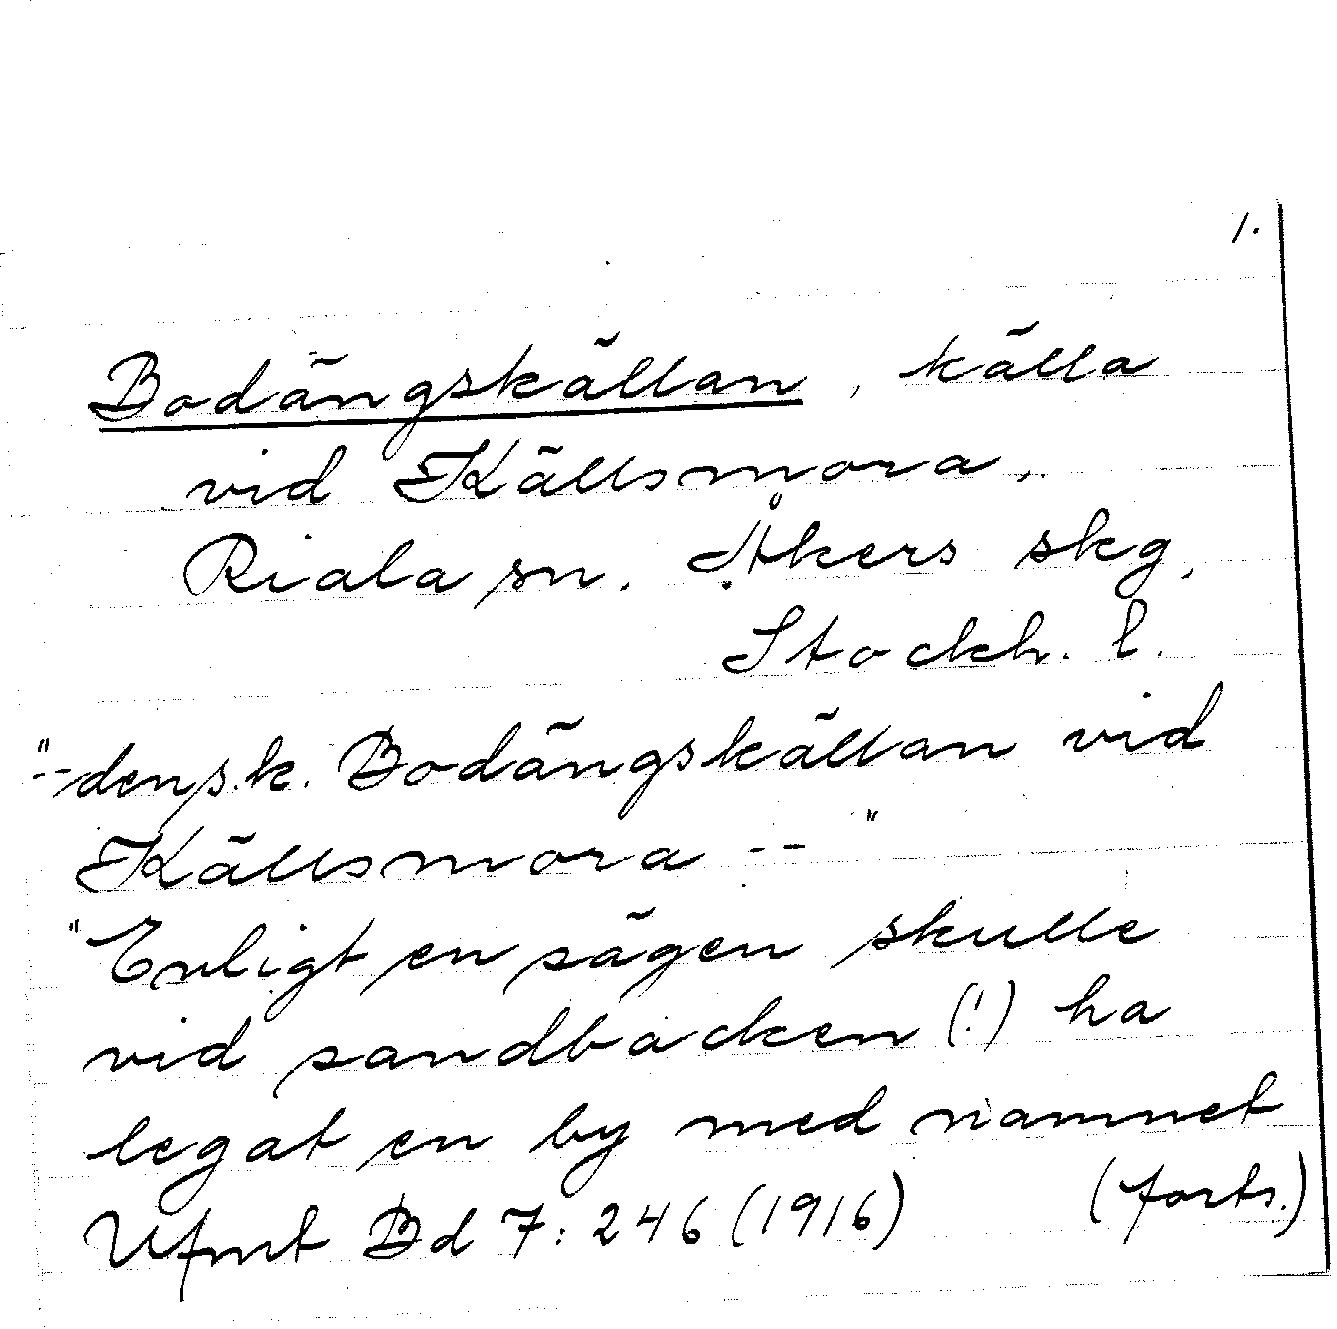 1.
Bodängskällan, källa
vid Källsmora,
Riala sn. Åkers skg,
Stockh. l.
"--den s.k. Bodängskällan vid
Källsmora --"
"Enligt en sägen skulle
vid sandbacken (!) ha
legat en by med namnet
Ufmt Bd 7: 246 (1916) (forts.)